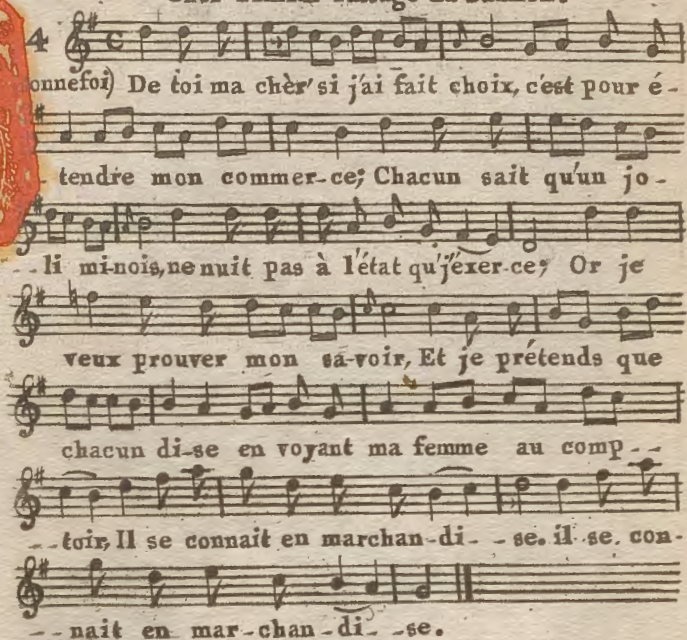 4
onnefoi) De toi ma chèr' si j'ai fait choix, c'est pour é-
tendre mon commer-ce; Chacun sait qu'un jo-
-- li mi-nois, ne nuit pas à l'état qu'j'éxer-ce; Or je
veux prouver mon sa-voir, Et je prétends que
chacun di-se en voyant ma femme au comp--
--toir, Il se connait en marchan-di--se. il se. con-
--nait en mar-chan-di--se.